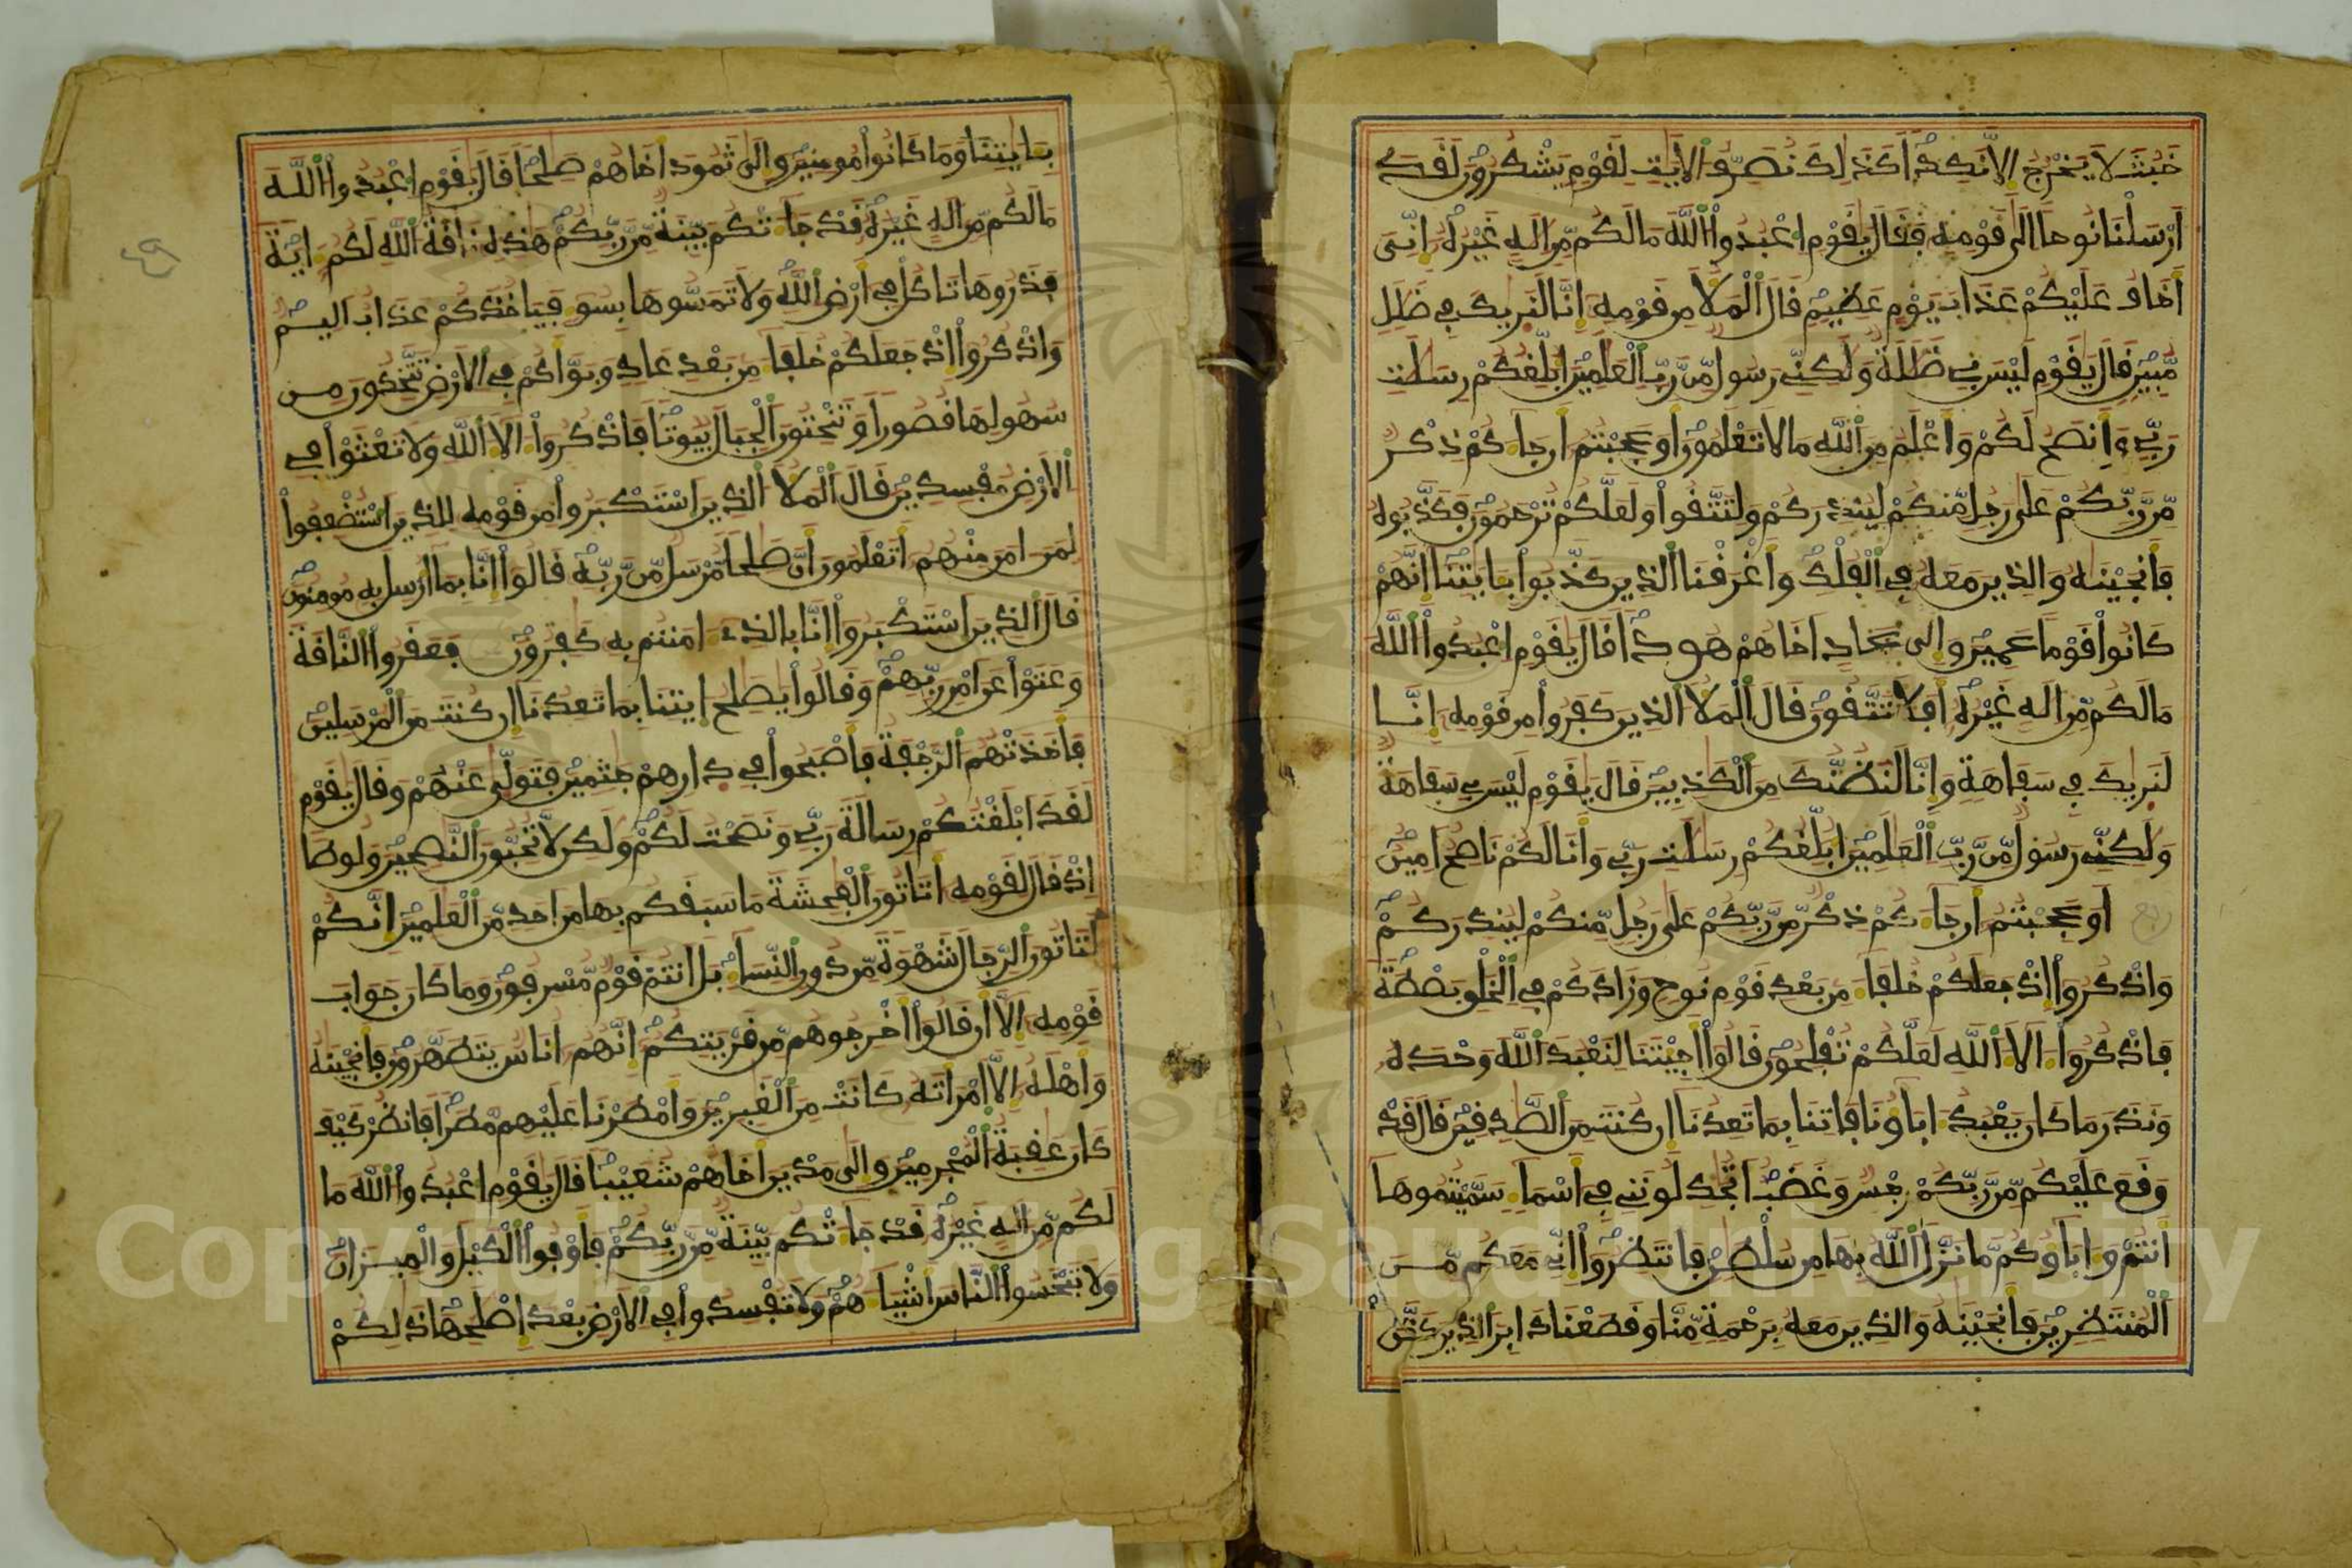 خبث لا يخرج إلا نكدا كذلك نصرف الايت لقوم يشكرون لقد
أرسلنا نوحا الى قومه فقال يقوم اعبدوا الله مالكم من اله غيره إني
أخاف عليكم عذاب يوم عظيم قال الملا من قومه إنا لنريك في ضلل
مبين قال يقوم ليس بي ضللة ولكني رسول من رب العلمين أبلغكم رسلت
ربي وأنصح لكم وأعلم من الله مالا تعلمون أو عجبتم أن جاءكم ذكر
من ربكم على رجل منكم لينذركم ولتتقوا ولعلكم ترحمون فكذبوه
فأنجينه والذين معه في الفلك وأغرقنا الذين كذبوا بايتنا إنهم
كانوا قوما عمين وإلى عاد اخاهم هودا قال يقوم اعبدوا الله
مالكم من اله غيره أفلا تتقون قال الملا الذين كفروا من قومه إنا
لنريك في سفاهة وإنا لنظنك من الكذبين قال يقوم ليس بي سفاهة
ولكني رسول من رب العلمين أبلغكم رسلت ربي وأنا لكم ناصح امين
أو عجبتم أن جاءكم ذكر من ربكم على رجل منكم لينذركم
واذكروا إذ جعلكم خلفاء من بعد قوم نوح وزادكم في الخلق بصطة
فاذكروا ءالاء الله لعلكم تفلحون قالوا أجيتنا لنعبد الله وحده
ونذر ما كان يعبد ءاباؤنا فاتنا بما تعدنا إن كنت من الصدقين قال قد
وقع عليكم من ربكم رجس وغضب اتجدلونني في أسماء سميتموها
أنتم وءاباؤكم ما نزل الله بها من سلطن فانتظروا إني معكم من
المنتظرين فأنجينه والذين معه برحمة منا وقطعنا دابر الذين كذبوا
بايتنا وما كانوا مومنين وإلى ثمود أخاهم صلحا قال يقوم اعبدوا الله
مالكم من اله غيره قد جاءتكم بينة من ربكم هذه ناقة الله لكم ءاية
فذروها تاكل في أرض الله ولا تمسوها بسوء فياخذكم عذاب اليم
واذكروا إذ جعلكم خلفاء من بعد عاد وبوأكم في الارض تتخذون من
سهولها قصورا وتنحتون الجبال بيوتا فاذكروا ءالاء الله ولا تعثوا في
الارض مفسدين قال الملا الذين استكبروا من قومه للذين استضعفوا
لمن ءامن منهم أتعلمون أن صلحا مرسل من ربه قالوا إنا بما أرسل به مومنون
قال الذين استكبروا إنا بالذي ءامنتم به كفرون فعقروا الناقة
وعتوا عن امر ربهم وقالوا يصلح ايتنا بما تعدنا إن كنت من المرسلين
فأخذتهم الرجفة فأصبحوا في دارهم جثمين فتولى عنهم وقال يقوم
لقد ابلغتكم رسالة ربي ونصحت لكم ولكن لا تحبون النصحين ولوطا
إذ قال لقومه أتاتون الفحشة ما سبقكم بها من احد من العلمين إنكم
لتاتون الرجال شهوة من دون النساء بل انتم قوم مسرفون وما كان جواب
قومه إلا أن قالوا أخرجوهم من قريتكم إنهم أناس يتطهرون فأنجينه
وأهله إلا امرأته كانت من الغبرين وأمطرنا عليهم مطرا فانظر كيف
كان عقبة المجرمين وإلى مدين أخاهم شعيبا قال يقوم اعبدوا الله ما
لكم من اله غيره قد جاءتكم بينة من ربكم فأوفوا الكيل والميزان
ولا تبخسوا الناس أشياءهم ولا تفسدوا في الارض بعد إصلحها ذلكم
Copyright © King Saud University